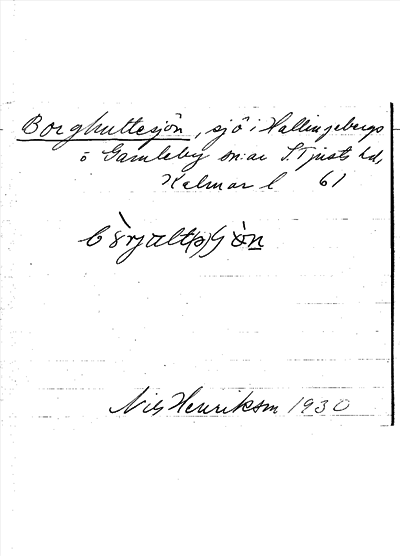 Borghultesjön, sjö i Hallingebergs
o Gamleby sn:ar S. Tjusts hd,
Kalmar l 61
Nils Henrikson 1930